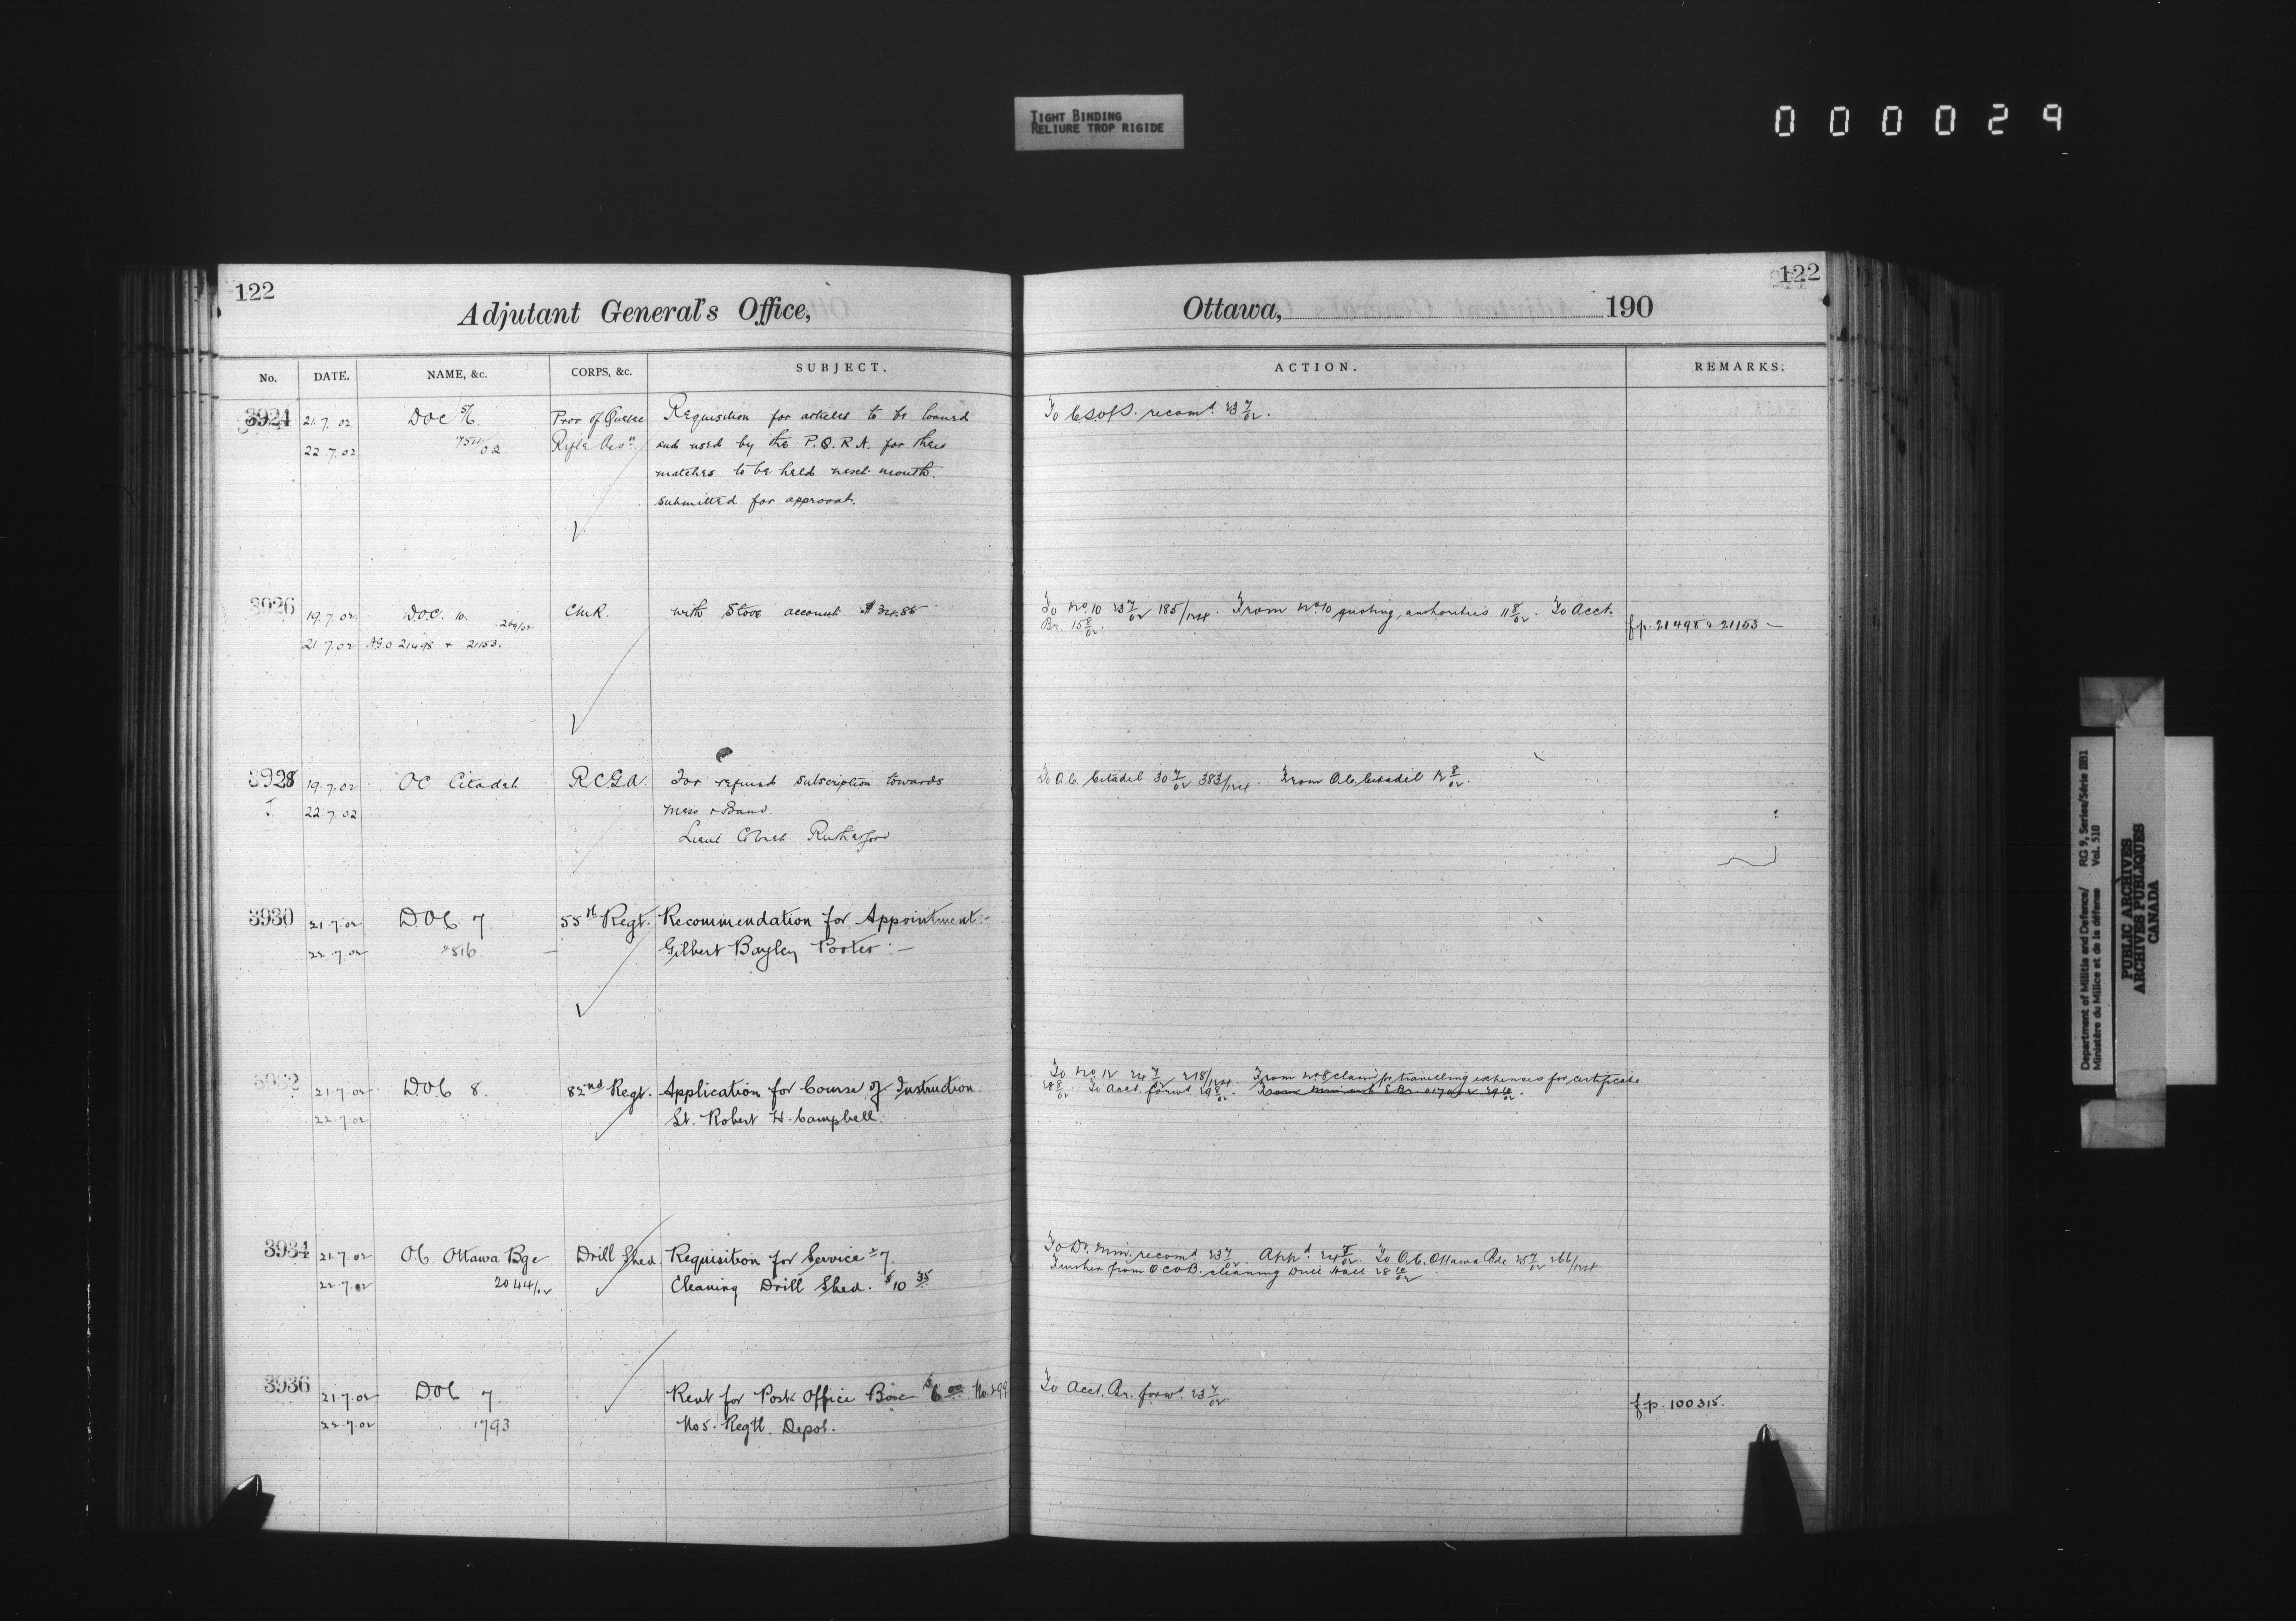 TIGHT BINDING
RELIURE TROP RIGIDE
000029
122
Adjutant General's Office,
No. DATE. NAME, &c. CORPS, &c. SUBJECT.
3924 21.7.02 DOC 5/6 Prov of Quebec Requisition for articles to be loaned
22.7.02 Rifle Assn and used by the P.Q.R.A. for their
matches to be held next month.
submitted for approval.
3926 19.7.02 D.O.C. 10. 269/02 CMR. with Store account
21.7.02 AGO 21498 + 21153.
3928 19.7.02 OC Citadel R.C.G.A. For refund subscription towards
22.7.02 Mess + Band.
Lieut Rutherford
3930 21.7.02 D.O.C. 7. 55th Regt. Recommendation for Appointment:-
22.7.02 Gilbert Bayley Porter:-
3932 21.7.02 D.O.C 8. 82nd Regt. Application for Course of Instruction:
22.7.02 Lt. Robert H. Campbell.
3934 21.7.02 O.C. Ottawa Bge Drill Shed. Requisition for Service 7.
22.7.02 2044/02 Cleaning Drill Shed. $10 35
3936 21.7.02 D.O.C 7. Rent for Post Office Box $6.00 No. 299
22.7.02 1793 No 5. Regtl. Depot.
122
Ottawa, 190
ACTION. REMARKS.
To C.S. of S. recomd. 23 7/02.
To No. 10 23 7/02 185/ . From No. 10 quoting authorities 11 8/02. To Acct.
Br. 15 8/02.
f.p. 21498 & 21153 -
To O.C. Citadel 30 7/02 383/ . From O.C. Citadel 12 8/02.
To No 12 24 7/02 218/ . From No 8 claim for travelling expenses for certificate
28 8/02. To Acct. forwd 29 8/02.
To D. Min. recomd 23 7/02. Appd. 24 7/02. To O.C. Ottawa Bde 25 7/02 266/
Further from O.C.O.B. cleaning Drill Hall 28 10/02
To Acct. Br. forwd. 23 7/02
f.p. 100315.
Department of Militia and Defence/ RG 9, Series/Série IIB1
Ministère du Milice et de la défense Vol. 510
PUBLIC ARCHIVES
ARCHIVES PUBLIQUES
CANADA